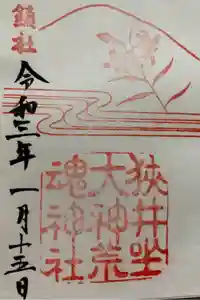 鎮社
令和三年一月十五日
狭井坐
大神荒
魂神社